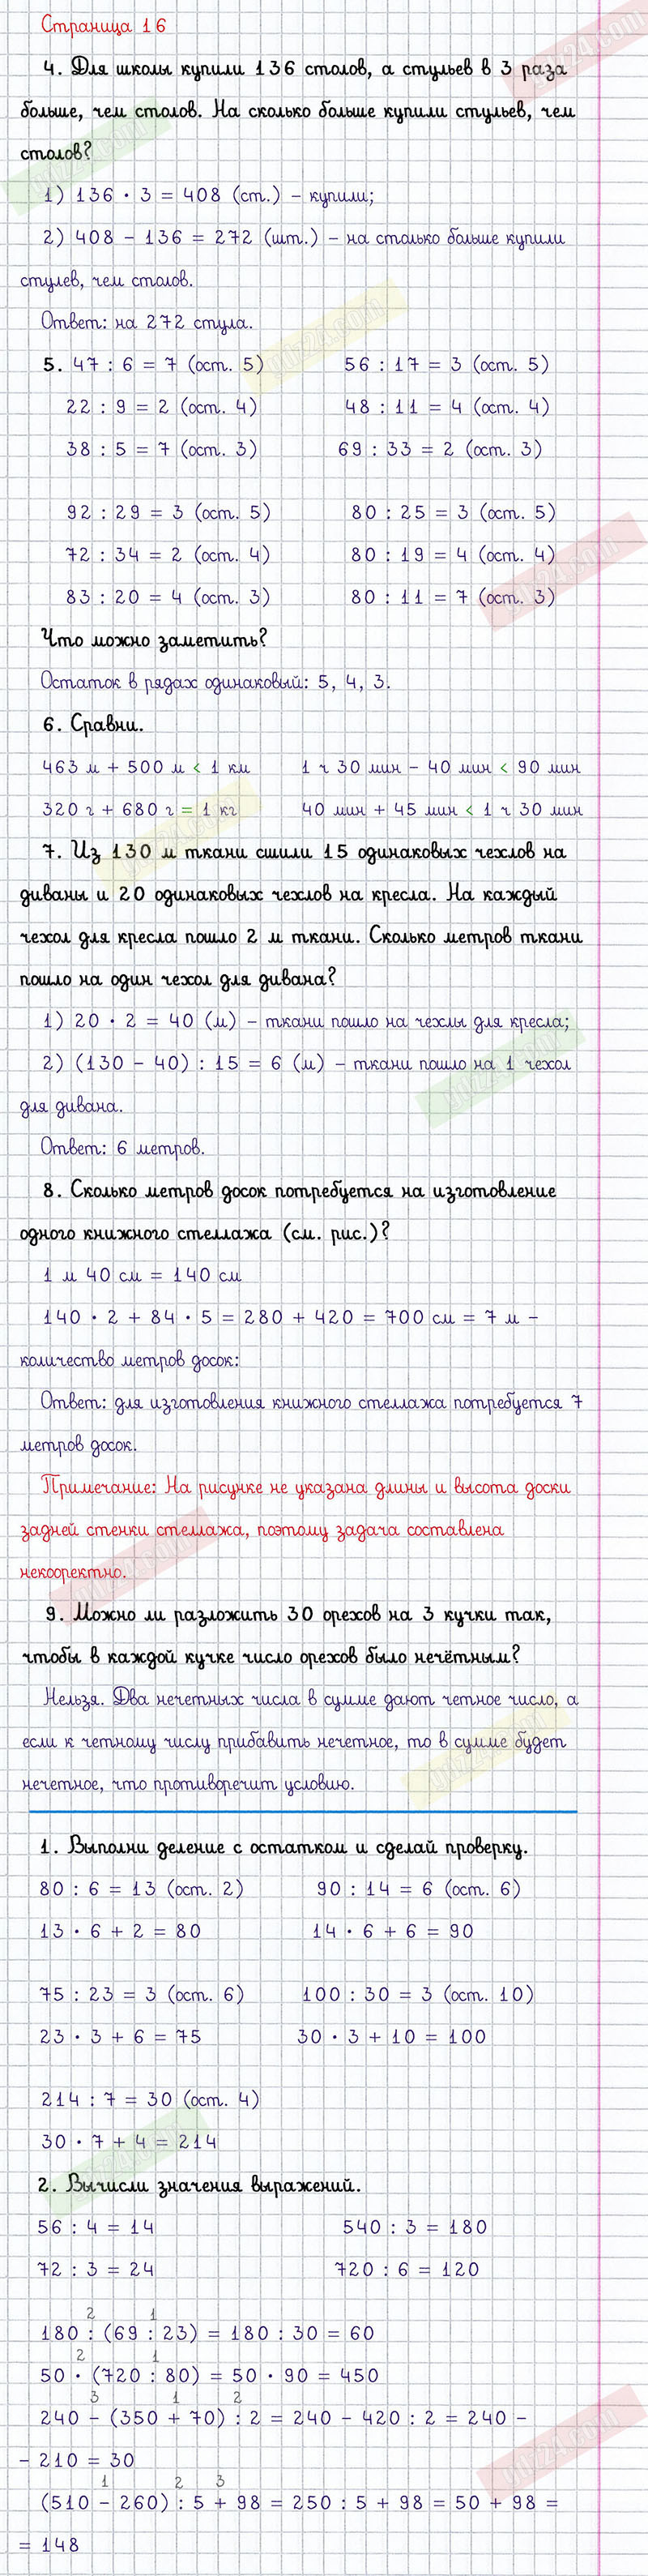 Страница 16
4. Для школы купили 136 столов, а стульев в 3 раза
больше, чем столов. На сколько больше купили стульев, чем
столов?
1) 136 · 3 = 408 (ст.) – купили;
2) 408 – 136 = 272 (шт.) – на столько больше купили
стулев, чем столов.
Ответ: на 272 стула.
5. 47 : 6 = 7 (ост. 5) 56 : 17 = 3 (ост. 5)
22 : 9 = 2 (ост. 4) 48 : 11 = 4 (ост. 4)
38 : 5 = 7 (ост. 3) 69 : 33 = 2 (ост. 3)
92 : 29 = 3 (ост. 5) 80 : 25 = 3 (ост. 5)
72 : 34 = 2 (ост. 4) 80 : 19 = 4 (ост. 4)
83 : 20 = 4 (ост. 3) 80 : 11 = 7 (ост. 3)
Что можно заметить?
Остаток в рядах одинаковый: 5, 4, 3.
6. Сравни.
463 м + 500 м < 1 км 1 ч 30 мин – 40 мин < 90 мин
320 г + 680 г = 1 кг 40 мин + 45 мин < 1 ч 30 мин
7. Из 130 м ткани сшили 15 одинаковых чехлов на
диваны и 20 одинаковых чехлов на кресла. На каждый
чехол для кресла пошло 2 м ткани. Сколько метров ткани
пошло на один чехол для дивана?
1) 20 · 2 = 40 (м) – ткани пошло на чехлы для кресла;
2) (130 – 40) : 15 = 6 (м) – ткани пошло на 1 чехол
для дивана.
Ответ: 6 метров.
8. Сколько метров досок потребуется на изготовление
одного книжного стеллажа (см. рис.)?
1 м 40 см = 140 см
140 · 2 + 84 · 5 = 280 + 420 = 700 см = 7 м –
количество метров досок:
Ответ: для изготовления книжного стеллажа потребуется 7
метров досок.
Примечание: На рисунке не указана длины и высота доски
задней стенки стеллажа, поэтому задача составлена
некооректно.
9. Можно ли разложить 30 орехов на 3 кучки так,
чтобы в каждой кучке число орехов было нечётным?
Нельзя. Два нечетных числа в сумме дают четное число, а
если к четному числу прибавить нечетное, то в сумме будет
нечетное, что противоречит условию.
1. Выполни деление с остатком и сделай проверку.
80 : 6 = 13 (ост. 2) 90 : 14 = 6 (ост. 6)
13 · 6 + 2 = 80 14 · 6 + 6 = 90
75 : 23 = 3 (ост. 6) 100 : 30 = 3 (ост. 10)
23 · 3 + 6 = 75 30 · 3 + 10 = 100
214 : 7 = 30 (ост. 4)
30 · 7 + 4 = 214
2. Вычисли значения выражений.
56 : 4 = 14 540 : 3 = 180
72 : 3 = 24 720 : 6 = 120
2 1
180 : (69 : 23) = 180 : 30 = 60
2 1
50 · (720 : 80) = 50 · 90 = 450
3 1 2
240 – (350 + 70) : 2 = 240 – 420 : 2 = 240 –
– 210 = 30
1 2 3
(510 – 260) : 5 + 98 = 250 : 5 + 98 = 50 + 98 =
= 148